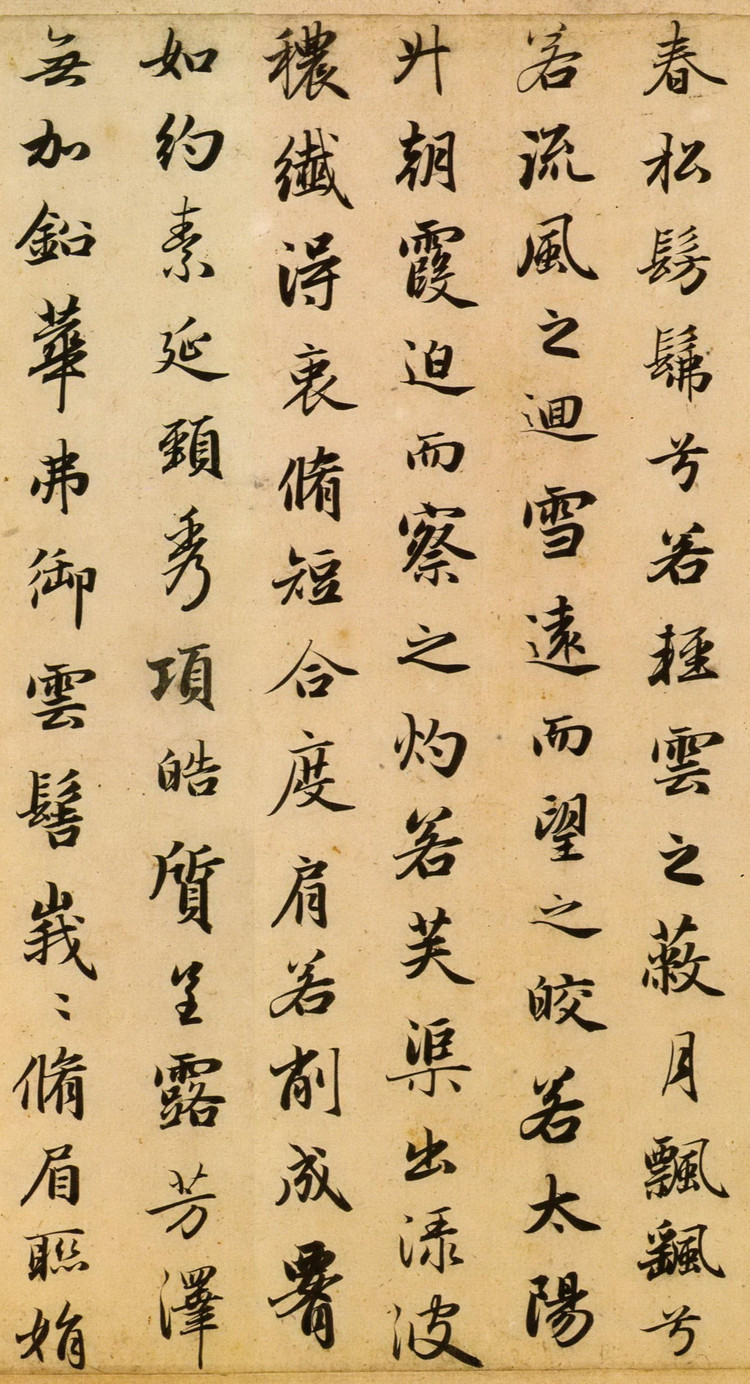 春松髣髴兮若輕雲之蔽月飄飖兮
若流風之迴雪遠而望之皎若太陽
升朝霞迫而察之灼若芙渠出淥波
穠纖得衷脩短合度肩若削成署
如約素延頸秀項皓質呈露芳澤
無加鉛華弗御雲髻峩〻脩眉聮娟